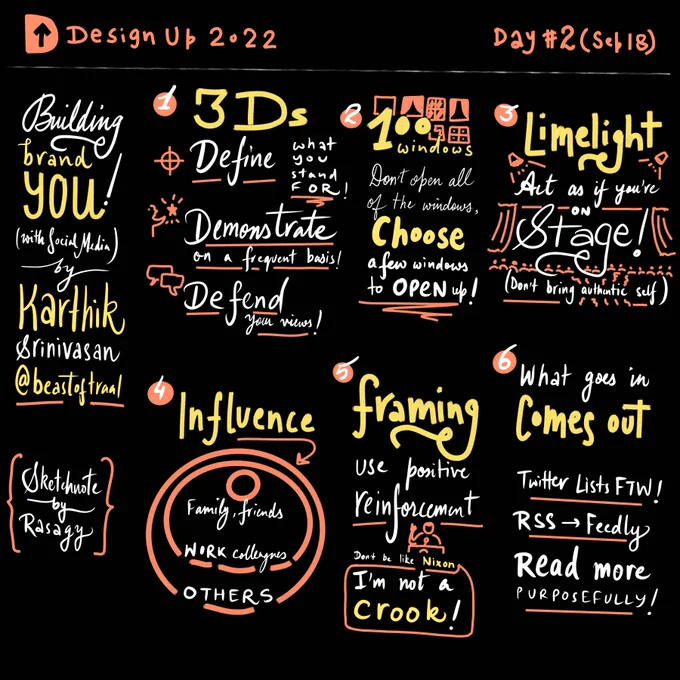 Design Up 2022
Day #2 (Sep 18)
Building
brand
YOU!
(with Social Media)
by
Karthik
Srinivasan
@beastoftraal
{Sketchnote
by
Rasagy}
1
3Ds
Define what
you
stand
FOR!
Demonstrate
on a frequent basis!
Defend
your views!
2
100
windows
Don't open all
of the windows,
Choose
a few windows
to OPEN up!
3
Limelight
Act as if you're
ON
Stage!
(Don't bring authentic self)
4
Influence
Family, friends
WORK colleagues
OTHERS
5
framing
USE positive
reinforcement
Don't be like Nixon
I'm not a
Crook!
6
What goes in
Comes out
Twitter Lists FTW!
RSS → Feedly
Read more
PURPOSEFULLY!